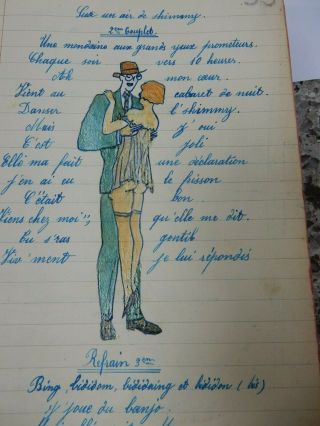 Sur un air de shimmy.
2me Couplet.
Une mondaine aux grands yeux prometeurs.
Chaque soir vers 10 heures.
Ah mon cœur.
Vient au cabaret de nuit.
Danser l'shimmy.
Mais j'oui
C'est joli
Elle ma fait une déclaration
J'en ai eu le frisson
C'était bon.
Viens chez moi", qu'elle me dit.
Tu s'ras gentil
Viv'ment je lui répondis
Refrain 3em
Bing, bididom, bididaing et bididon (bis)
J'joue du banjo.